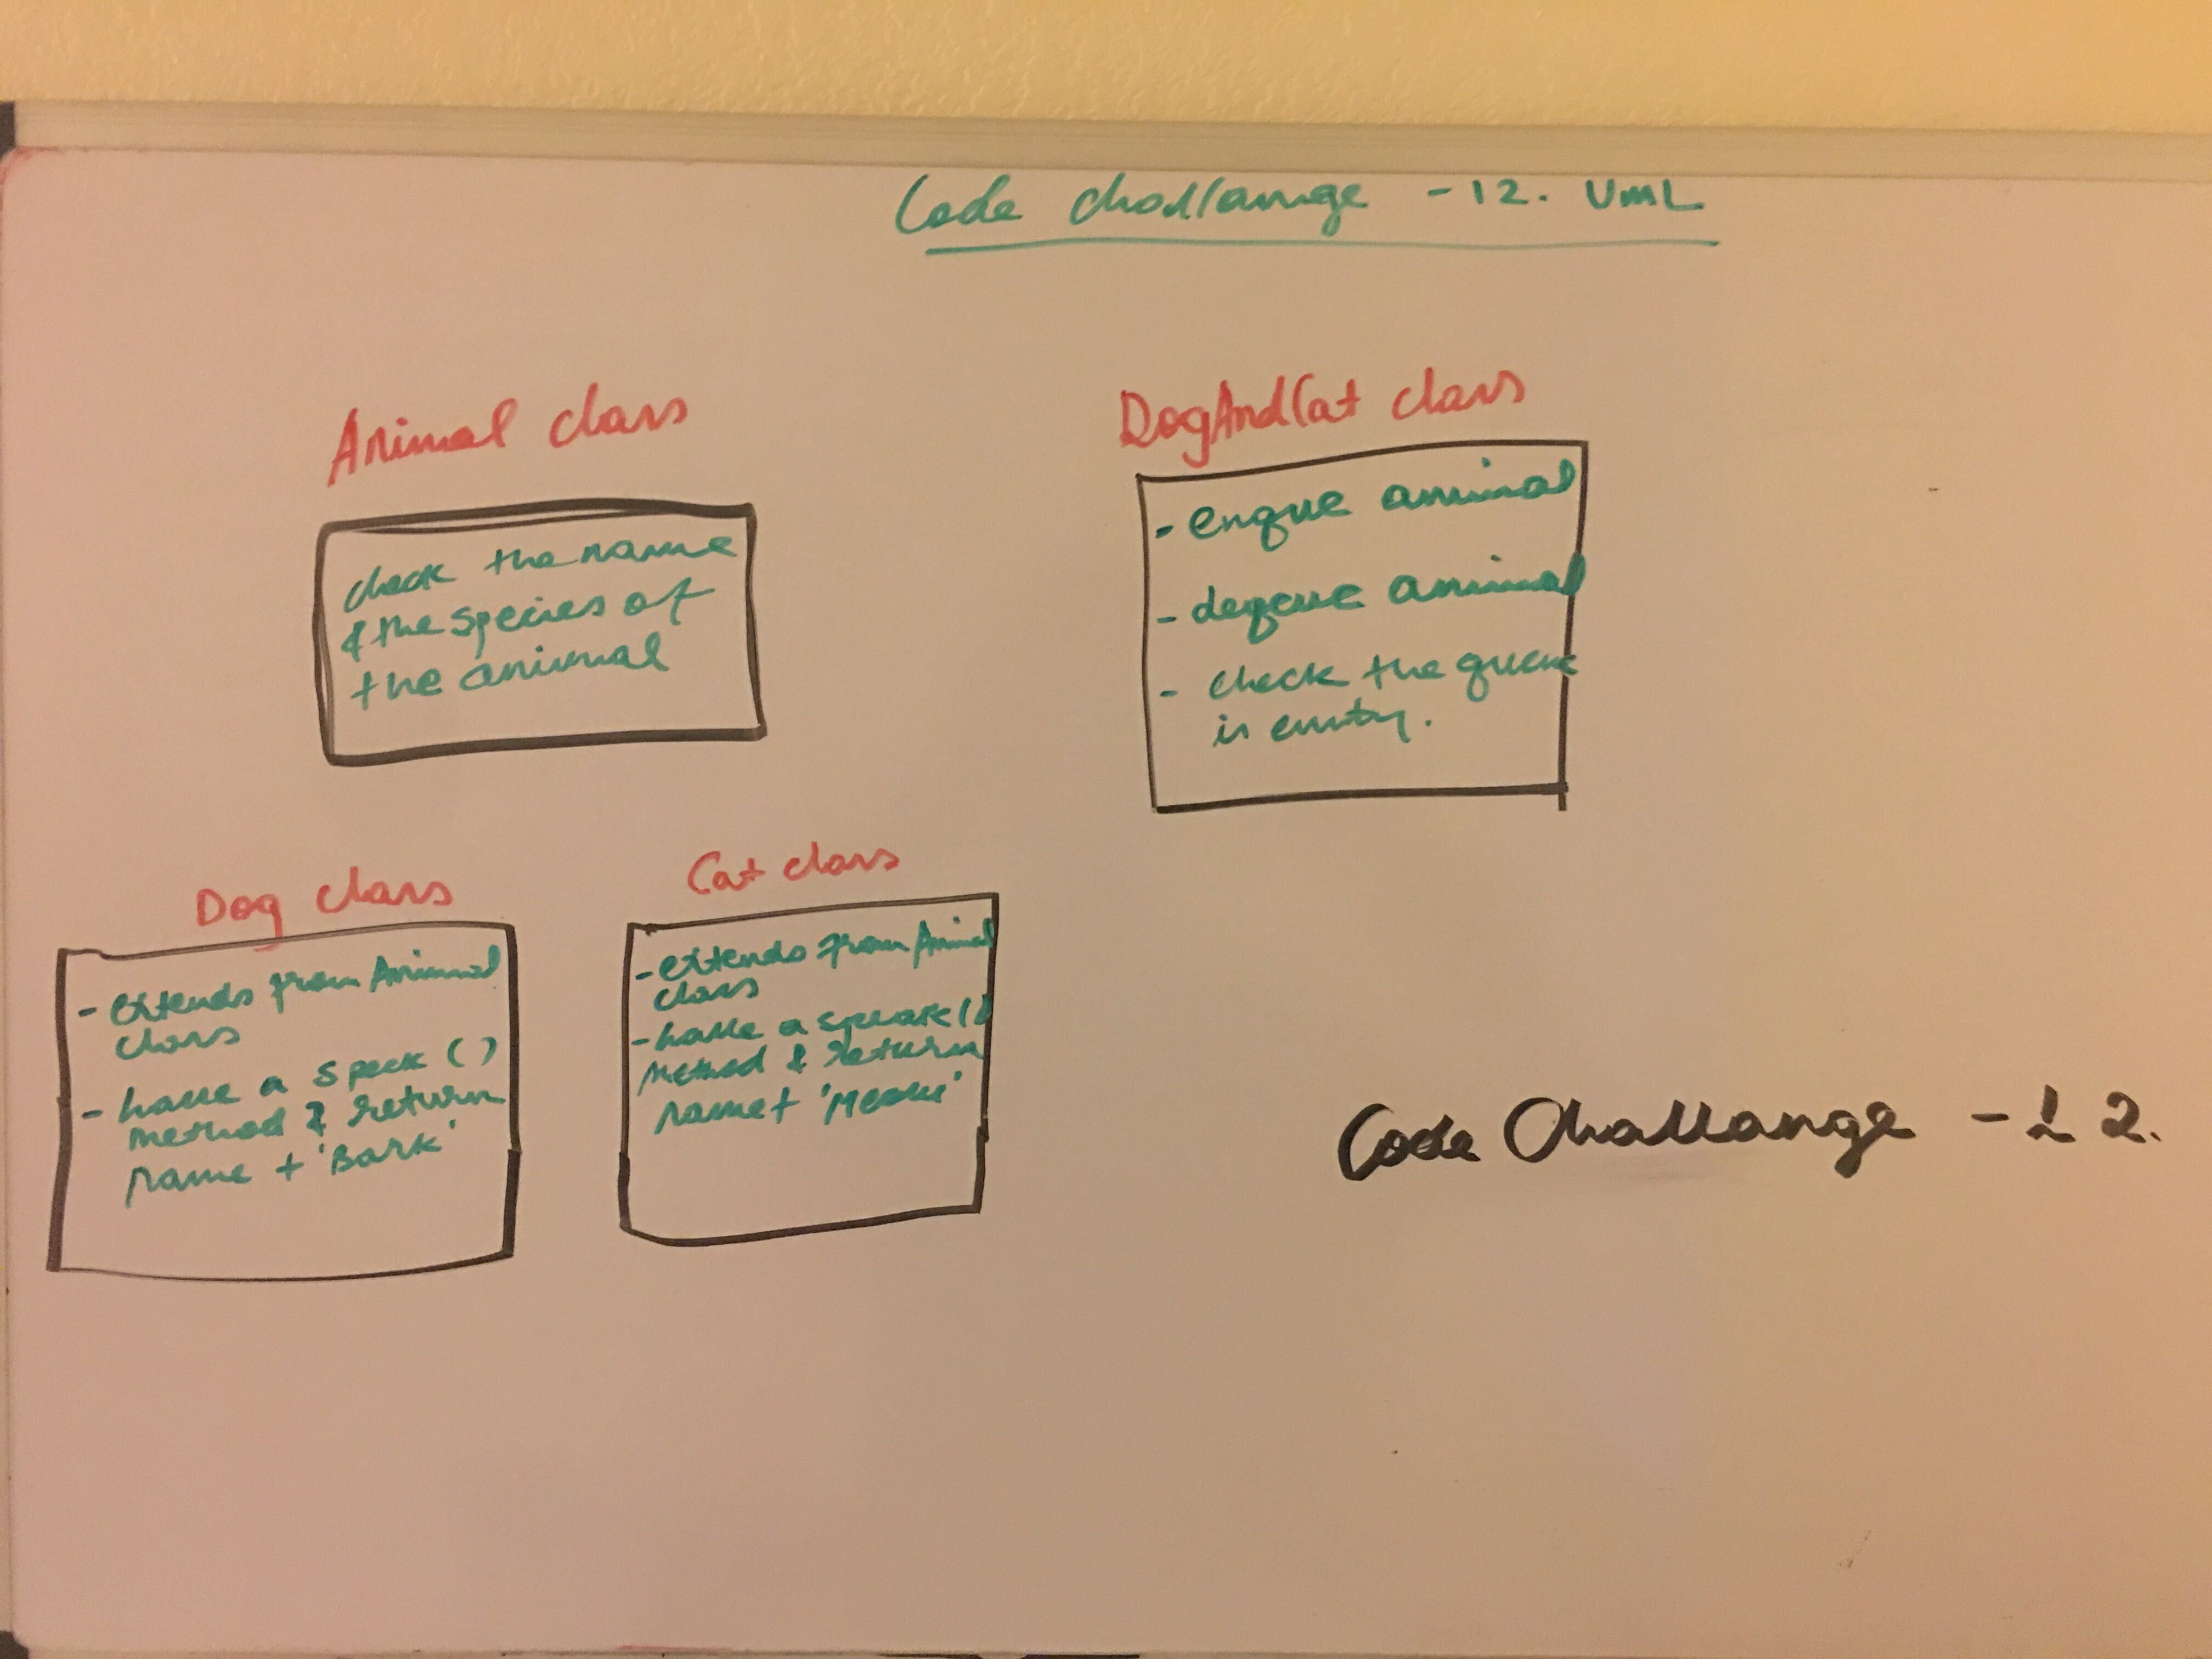 Code challange - 12. UML
Animal class
check the name
& the species of
the animal
DogAndCat class
- enque animal
- deqeue animal
- check the queue
is emty.
Dog class
- extends from Animal
class
- have a speek ()
method & return
name + 'Bark'
Cat class
- extends from Animal
class
- have a speak ()
method & return
name + 'Meow'
Code Challange - 12.